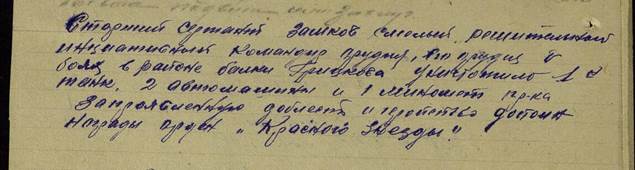 Старший сержант Замков смелый, решительный
инциативный командир орудия, его орудие в
боях в районе балки Грицкова уничтожило 1
танк, 2 автомашины и 1 миномет пр-ка
За проявленную доблесть и геройство достоин
награды орден „Красного Звезды".